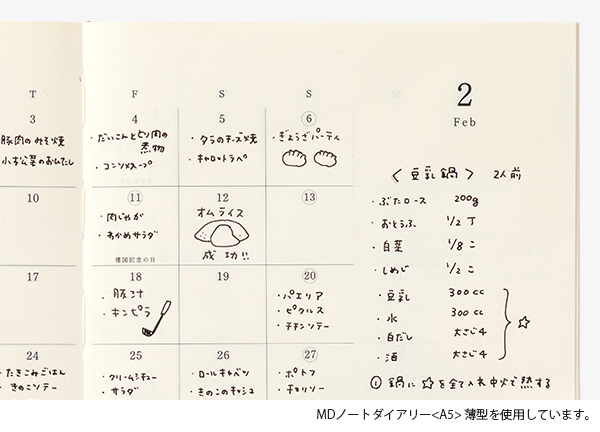 2
Feb
T F S S
3
豚肉のみそ焼
小松菜のおひたし
4
・だいこんととり肉の
煮物
・コンソメスープ
5
・タラのチーズ焼
・キャロットラペ
6
・ぎょうざパーティ
10
11
・肉じゃが
・わかめサラダ
建国記念の日
12
オムライス
成功!!
13
17
18
・豚汁
・キンピラ
19
20
・パエリア
・ピクルス
・チキンソテー
24
・たきこみごはん
・きのこソテー
25
・クリームシチュー
・サラダ
26
・ロールキャベツ
・きのこのキッシュ
27
・ポトフ
・チョリソー
〈豆乳鍋〉 2人前
・ぶたロース 200g
・おとうふ 1/2丁
・白菜 1/8コ
・しめじ 1/2コ
・豆乳 300cc
・水 300cc
・白だし 大さじ4
・酒 大さじ4
☆
① 鍋に☆を全て入れ中火で熱する
MDノートダイアリー<A5> 薄型を使用しています。